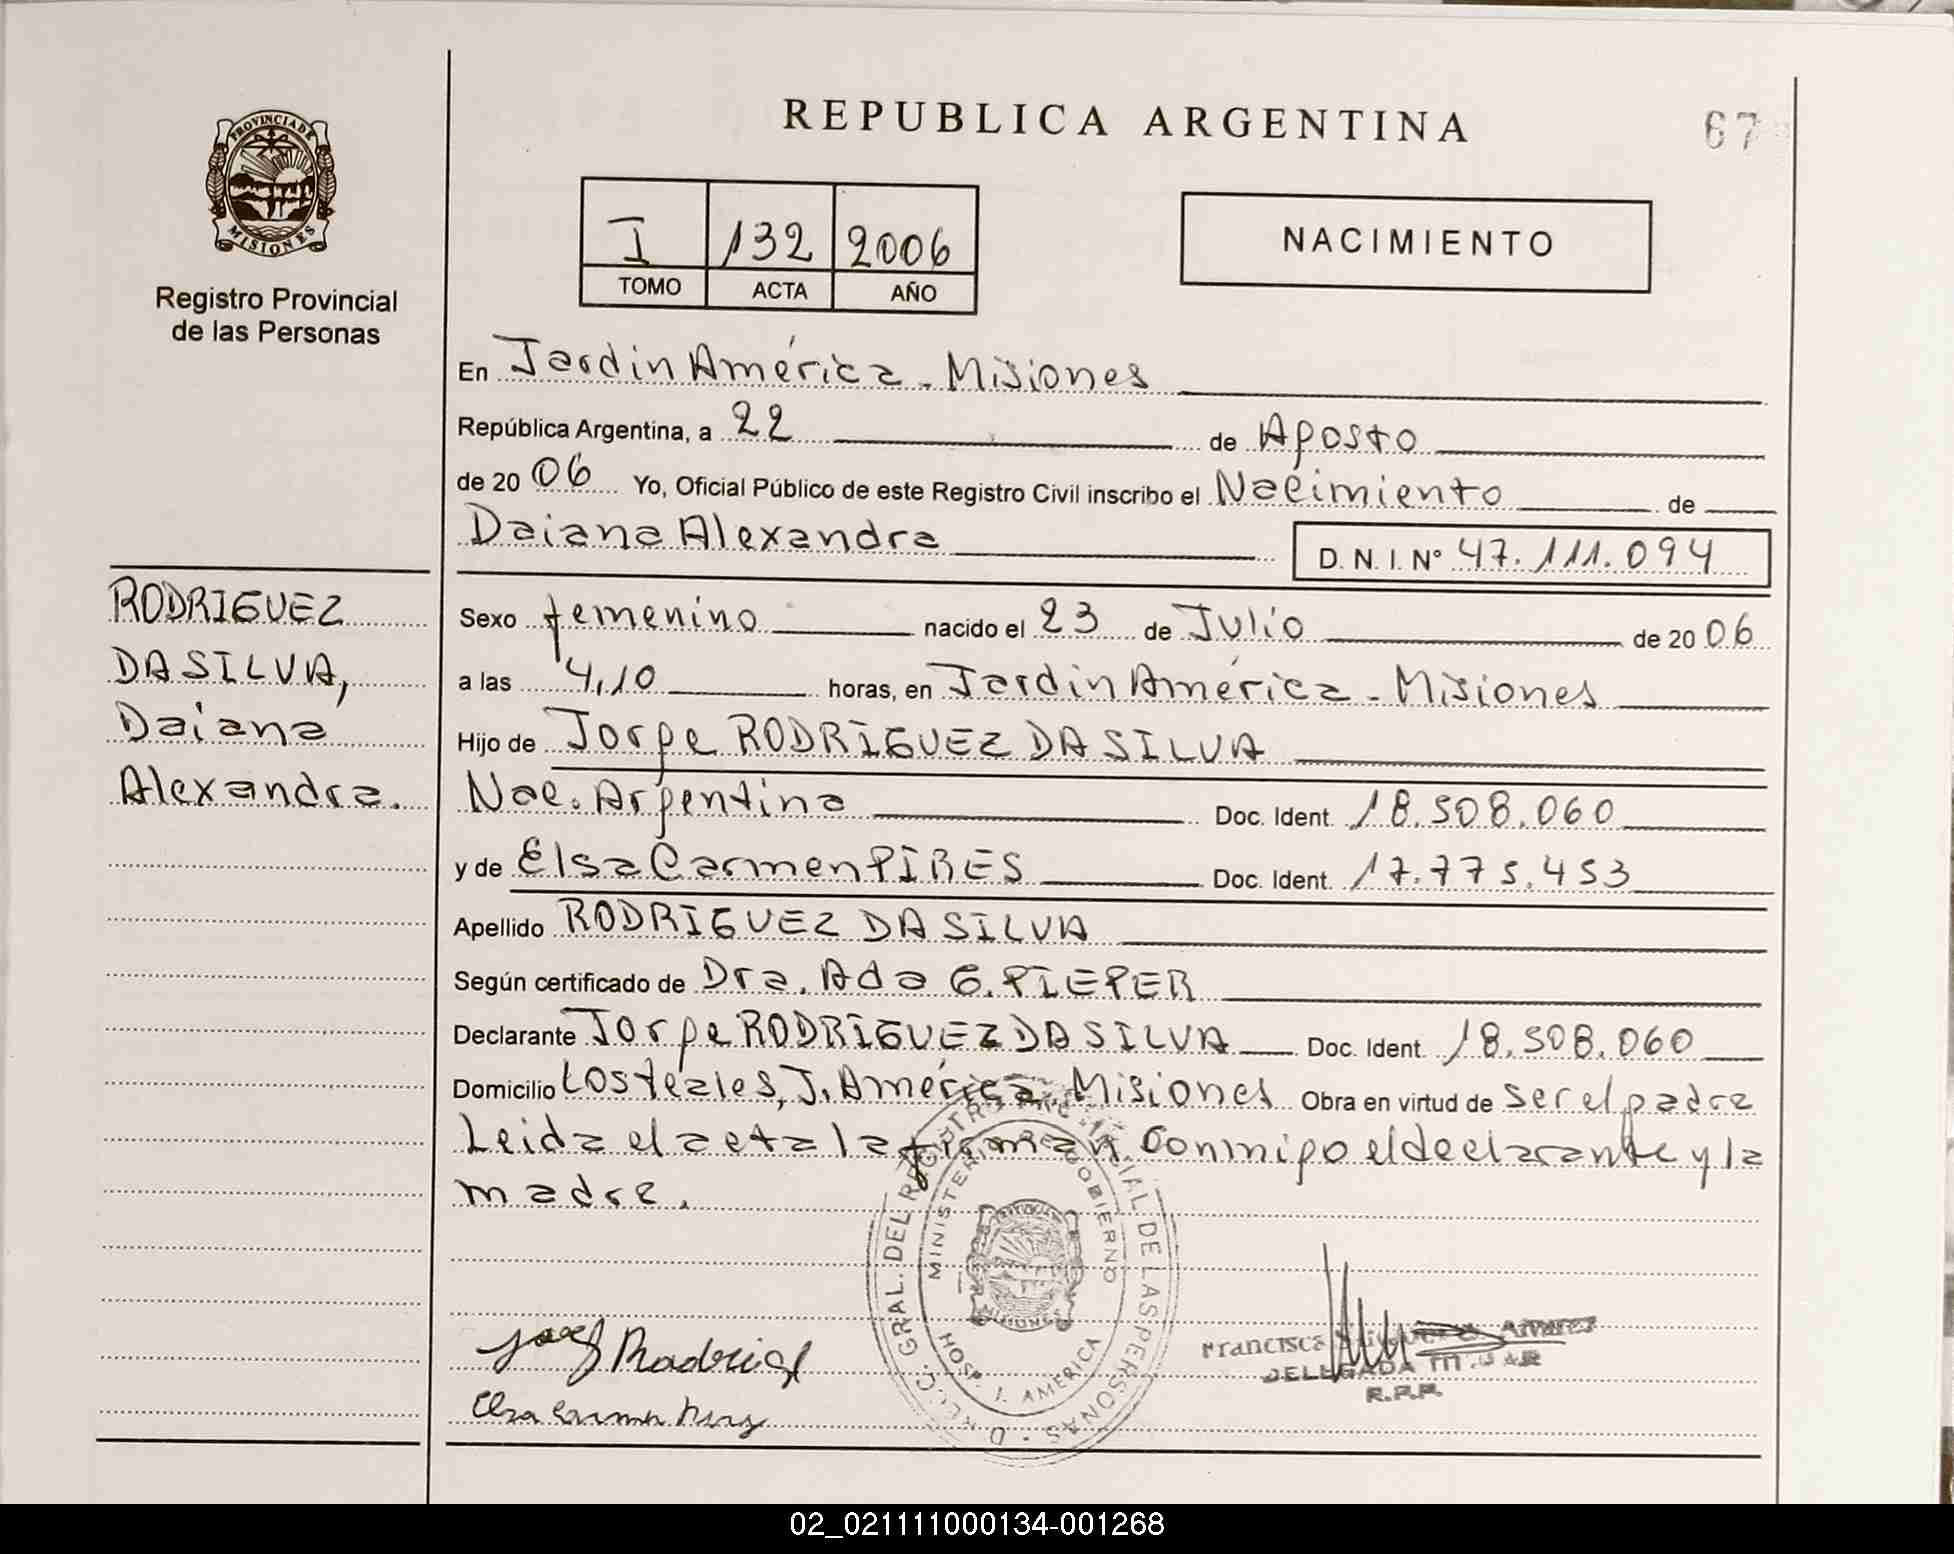 PROVINCIA DE
MISIONES
Registro Provincial
de las Personas
REPUBLICA ARGENTINA
67
I 132 2006
TOMO ACTA AÑO
NACIMIENTO
En Jardin América - Misiones
República Argentina, a 22 de Agosto
de 2006 Yo, Oficial Público de este Registro Civil inscribo el Nacimiento de
Daiana Alexandra D. N. I. N° 47.111.094
RODRIGUEZ
DA SILVA,
Daiana
Alexandra.
Sexo femenino nacido el 23 de Julio de 2006
a las 4,10 horas, en Jardin América - Misiones
Hijo de Jorge RODRIGUEZ DA SILVA
Nac. Argentina Doc. Ident. 18.508.060
y de Elsa Carmen PIRES Doc. Ident. 17.775.453
Apellido RODRIGUEZ DA SILVA
Según certificado de Dra. Ada G. PIEPER
Declarante Jorge RODRIGUEZ DA SILVA Doc. Ident. 18.508.060
Domicilio Los teales, J. América, Misiones Obra en virtud de ser el padre
Leida el acta la firman conmigo el declarante y la
madre.
MINISTERIO DE GOBIERNO
HOSP. J. AMERICA
Francisca Alvarez
DELEGADA
R.P.P.
02_021111000134-001268